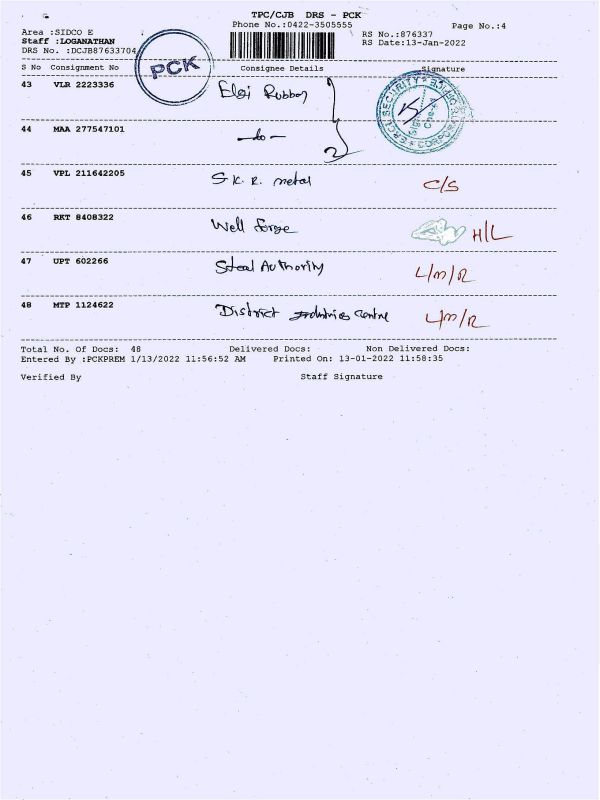 TPC/CJB DRS - PCK
Phone No.:0422-3505555
Page No.:4
Area :SIDCO E
RS No.:876337
Staff :LOGANATHAN
RS Date:13-Jan-2022
DRS No. :DCJB87633704
PCK
S No Consignment No Consignee Details Signature
43 VLR 2223336 Elgi Rubber
SECURITY
CORPORATE OFFICE
44 MAA 277547101 -do- 2
45 VPL 211642205 S.K.R. metal C/S
46 RKT 8408322 Well forge H/L
47 UPT 602266 Steel Authority L/m/R
48 MTP 1124622 District Industries Centre L/m/R
Total No. Of Docs: 48 Delivered Docs: Non Delivered Docs:
Entered By :PCKPREM 1/13/2022 11:56:52 AM Printed On: 13-01-2022 11:58:35
Verified By Staff Signature